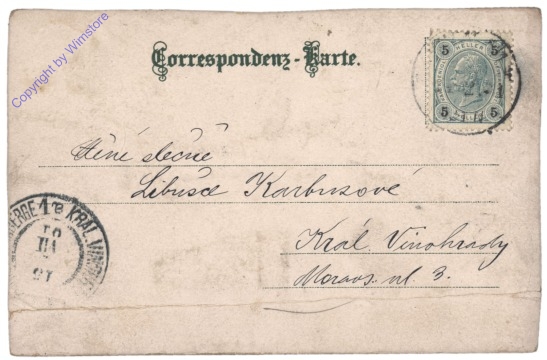 Copyright by Wimstore
Correspondenz-Karte.
5 HELLER 5
5 5
Ctěné slečně
Libušce Karbusové
Král. Vinohrady
Moravs. ul 3.
KRÁL. VINOHR